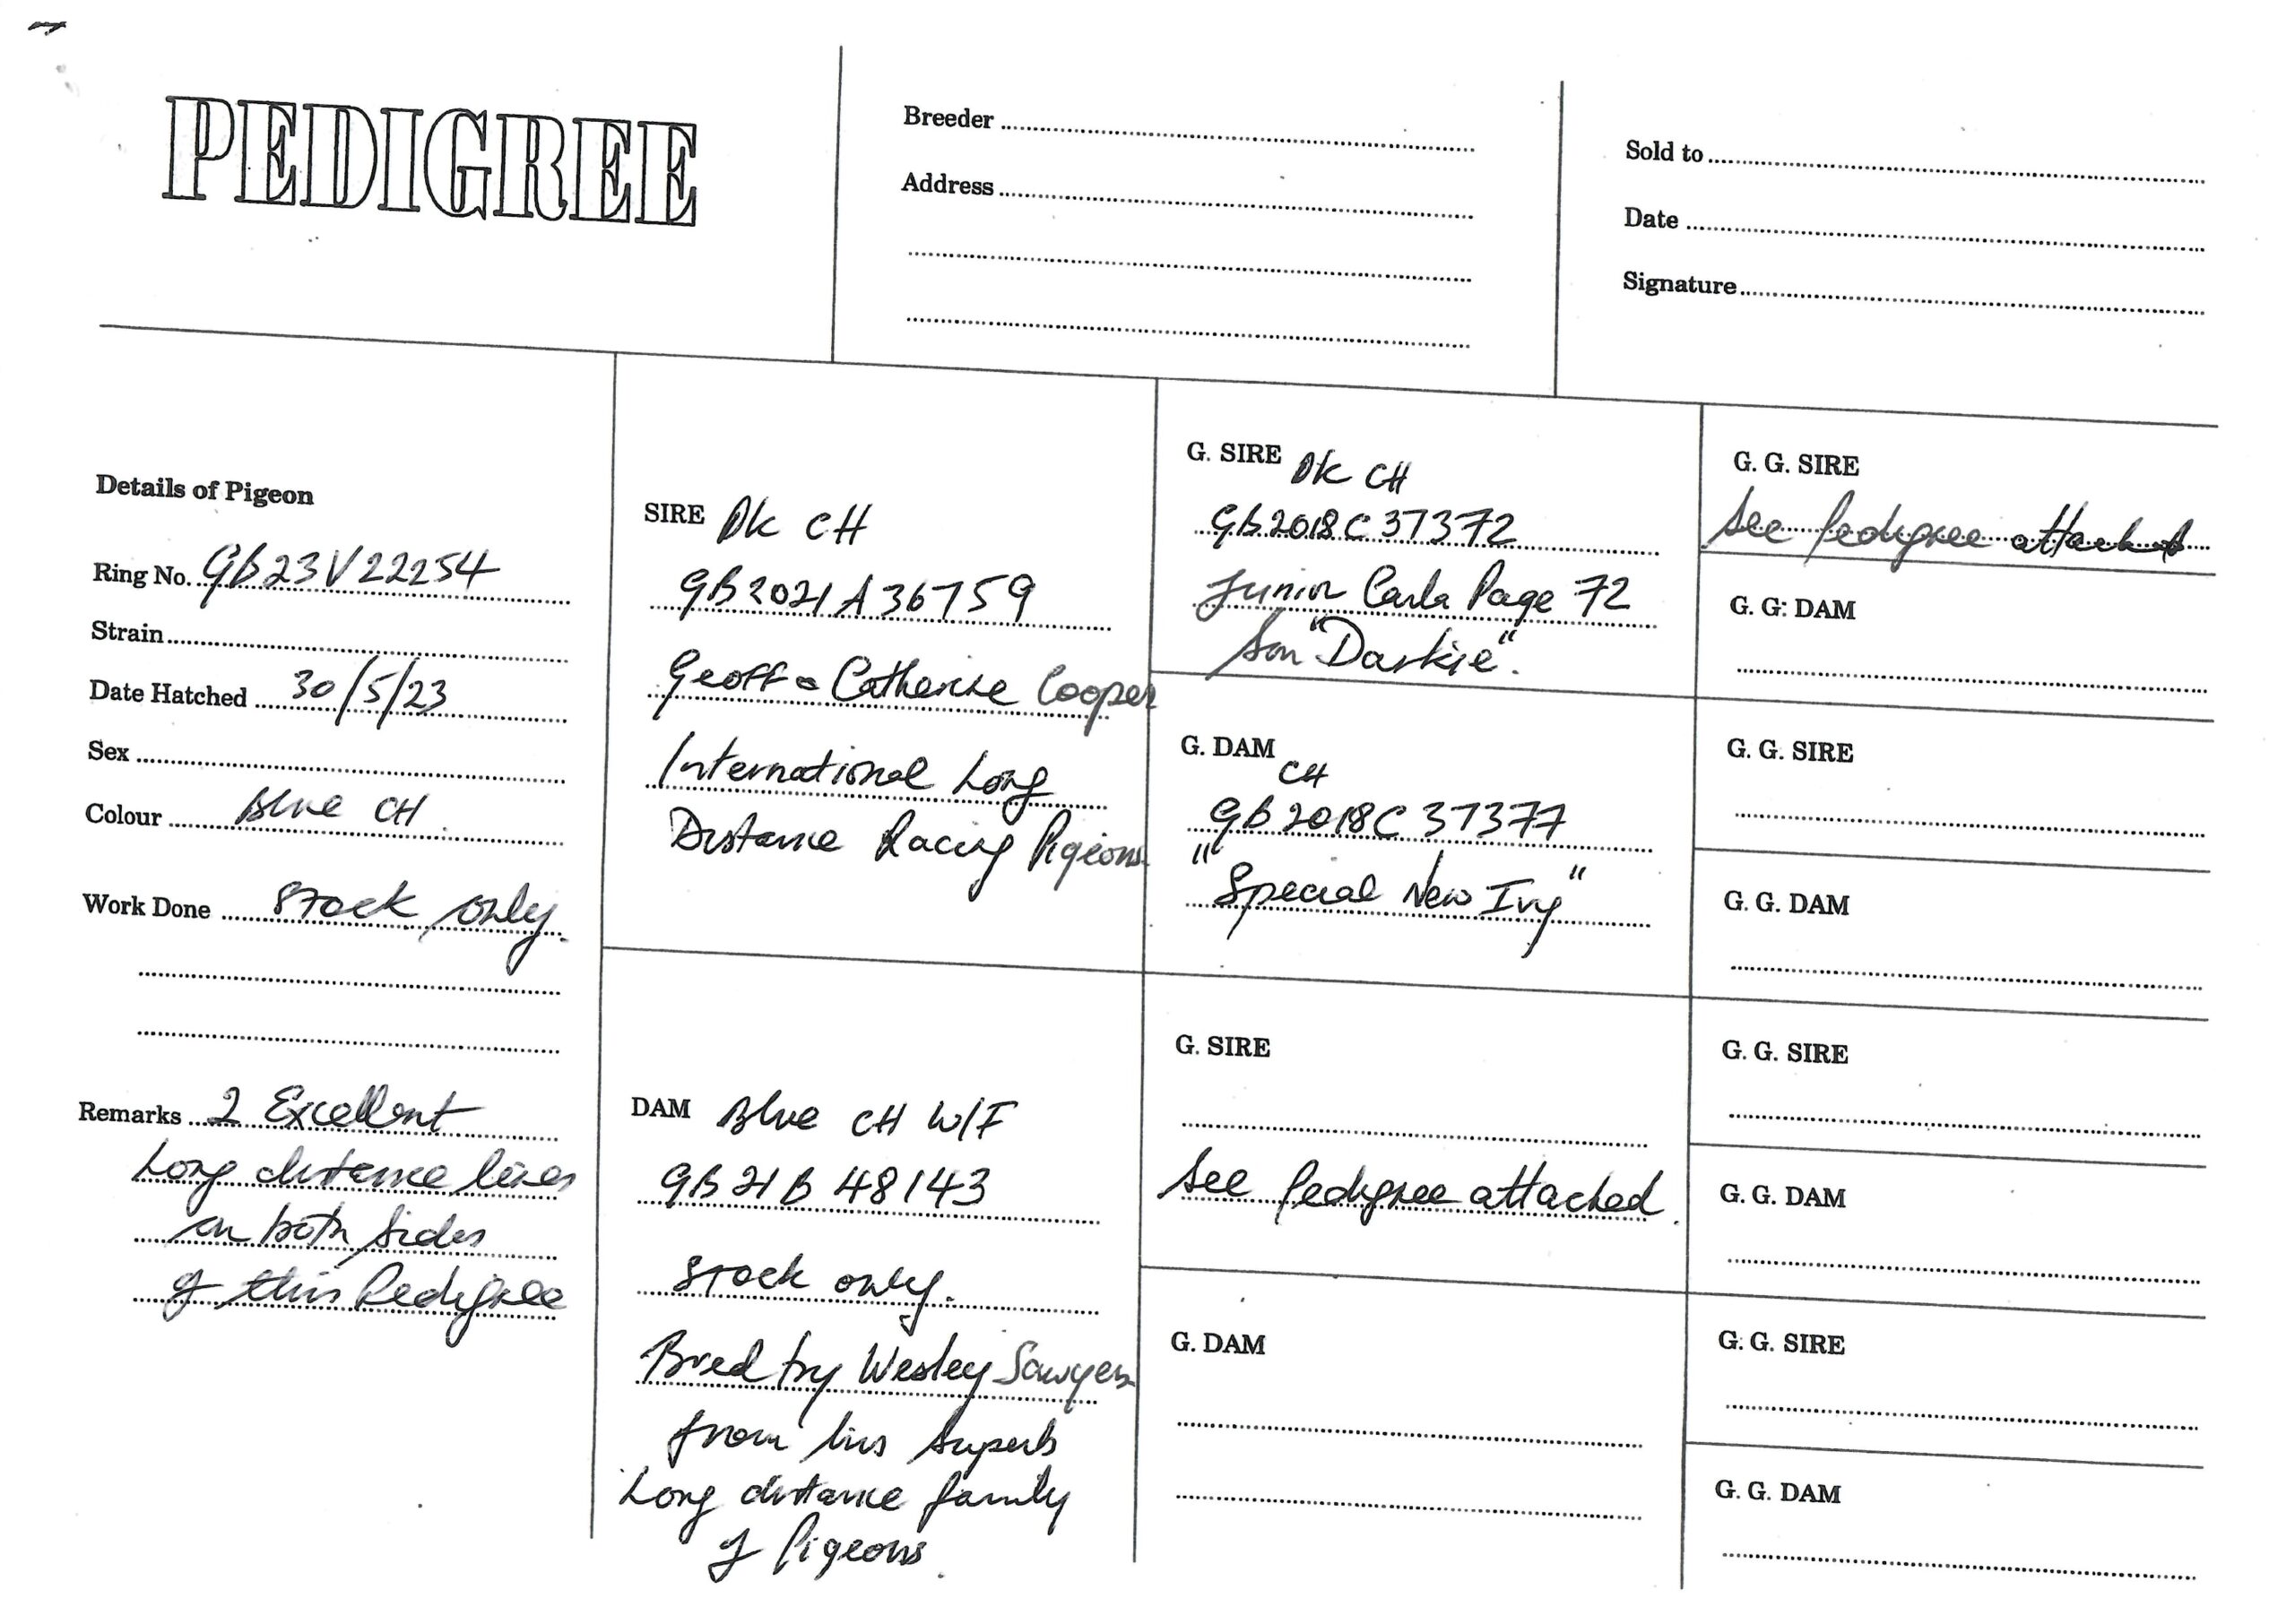 PEDIGREE
Breeder
Address
Sold to
Date
Signature
Details of Pigeon
Ring No. GB23V22254
Strain
Date Hatched 30/5/23
Sex
Colour Blue CH
Work Done Stock only.
Remarks 2 Excellent
Long distance lines
on both sides
of this Pedigree
SIRE Dk CH
GB2021A36759
Geoff & Catherine Cooper
International Long
Distance Racing Pigeons
DAM Blue CH W/F
GB21B48143
Stock only.
Bred by Wesley Sawyers
from his superb
Long distance family
of Pigeons.
G. SIRE Dk CH
GB2018C37372
Junior Carla Page 72
Son "Darkie".
G. DAM CH
GB2018C37377
"Special New Ivy"
G. SIRE
See Pedigree attached.
G. DAM
G. G. SIRE
See Pedigree attached
G. G. DAM
G. G. SIRE
G. G. DAM
G. G. SIRE
G. G. DAM
G. G. SIRE
G. G. DAM